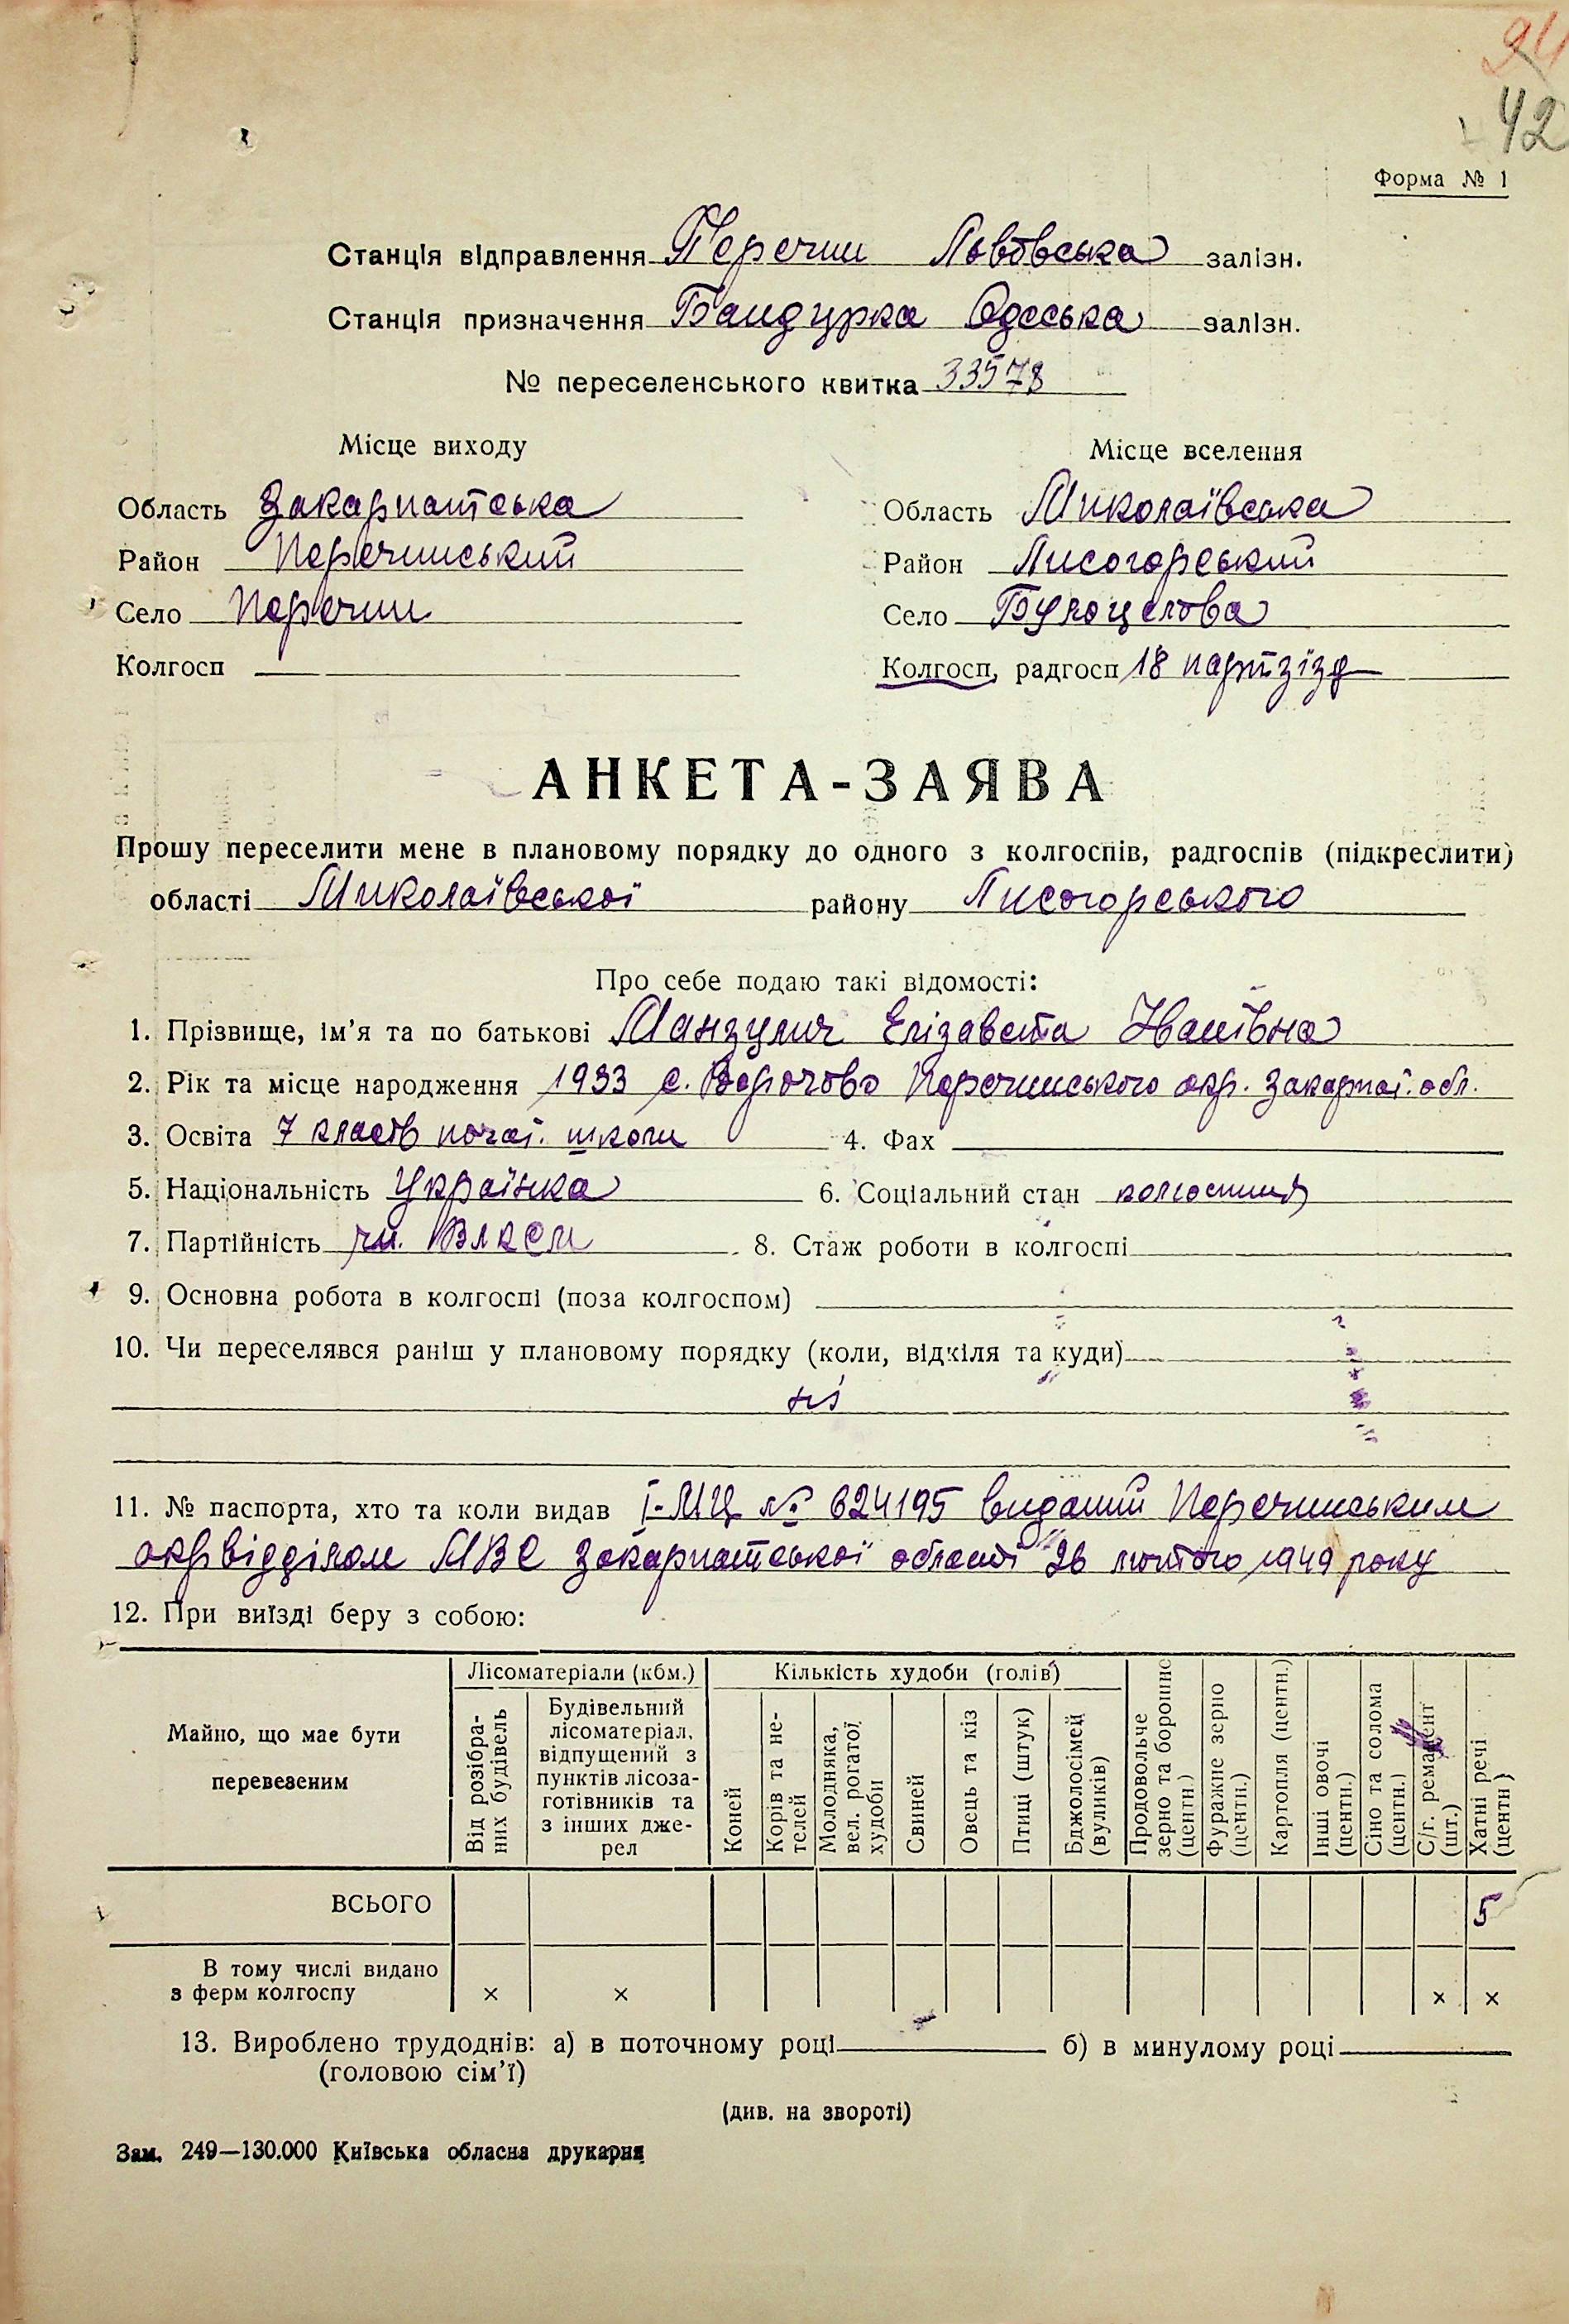 94
42
Форма № 1
Станція відправлення Перечин Львовська залізн.
Станція призначення Бандурка Одеська залізн.
№ переселенського квитка 33578
Місце виходу Місце вселення
Область Закарпатська Область Миколаївська
Район Перечинський Район Лисогорський
Село Перечин Село
Колгосп — Колгосп, радгосп 18 партзізд
АНКЕТА-ЗАЯВА
Прошу переселити мене в плановому порядку до одного з колгоспів, радгоспів (підкреслити)
області Миколаївської району Лисогорського
Про себе подаю такі відомості:
1. Прізвище, ім’я та по батькові Манзулич Елізавета Іванівна
2. Рік та місце народження 1933 с. Ворочово Перечинського окр. Закарпат. обл.
3. Освіта 7 класів почат. школи 4. Фах
5. Національність Українка 6. Соціальний стан
7. Партійність чл. ВЛКСМ 8. Стаж роботи в колгоспі
9. Основна робота в колгоспі (поза колгоспом)
10. Чи переселявся раніш у плановому порядку (коли, відкіля та куди)
ні
11. № паспорта, хто та коли видав І-МЦ № 624195 виданий Перечинським
окрвідділом МВС Закарпатської області 26 лютого 1949 року
12. При виїзді беру з собою:
Майно, що має бути перевезеним
Лісоматеріали (кбм.)
Кількість худоби (голів)
Від розібраних будівель
Будівельний
лісоматеріал,
відпущений з
пунктів лісоза-
готівників та
з інших дже-
рел
Коней
Корів та не-
телей
Молодняка,
вел. рогатої
худоби
Свиней
Овець та кіз
Птиці (штук)
Бджолосімей
(вуликів)
Продовольче
зерно та борошно
(центн.)
Фуражне зерно
(центн.)
Картопля (центн.)
Інші овочі
(центн.)
Сіно та солома
(центн.)
С/г. реманент
(шт.)
Хатні речі
(центн)
ВСЬОГО 5
В тому числі видано
з ферм колгоспу × × × ×
13. Вироблено трудоднів: а) в поточному році б) в минулому році
(головою сім’ї)
(див. на звороті)
Зам. 249—130.000 Київська обласна друкарня